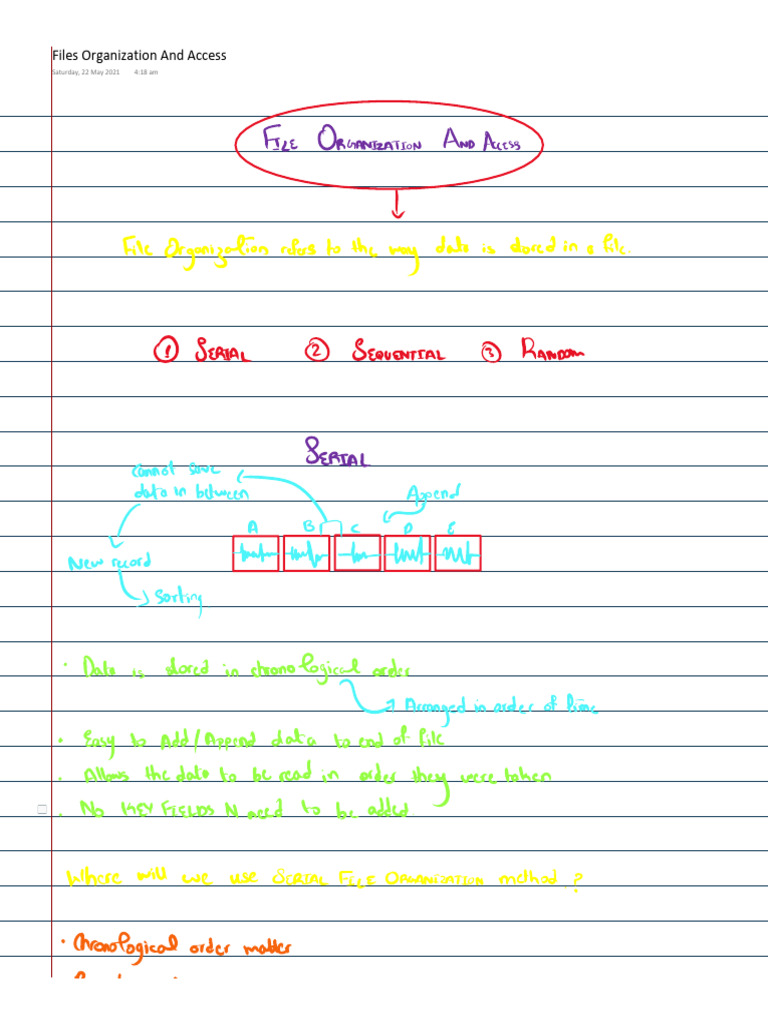 Files Organization And Access
Saturday, 22 May 2021 4:18 am
FILE ORGANIZATION AND ACCESS
File Organization refers to the way data is stored in a file.
1 SERIAL 2 SEQUENTIAL 3 RANDOM
SERIAL
cannot save
data in between
Append
A B C D E
New record
Sorting
• Data is stored in chronological order
Arranged in order of time
• Easy to Add/Append data to end of file
• Allows the data to be read in order they were taken
• No KEY FIELDS Need to be added
Where will we use SERIAL FILE ORGANIZATION method?
• Chronological order matter